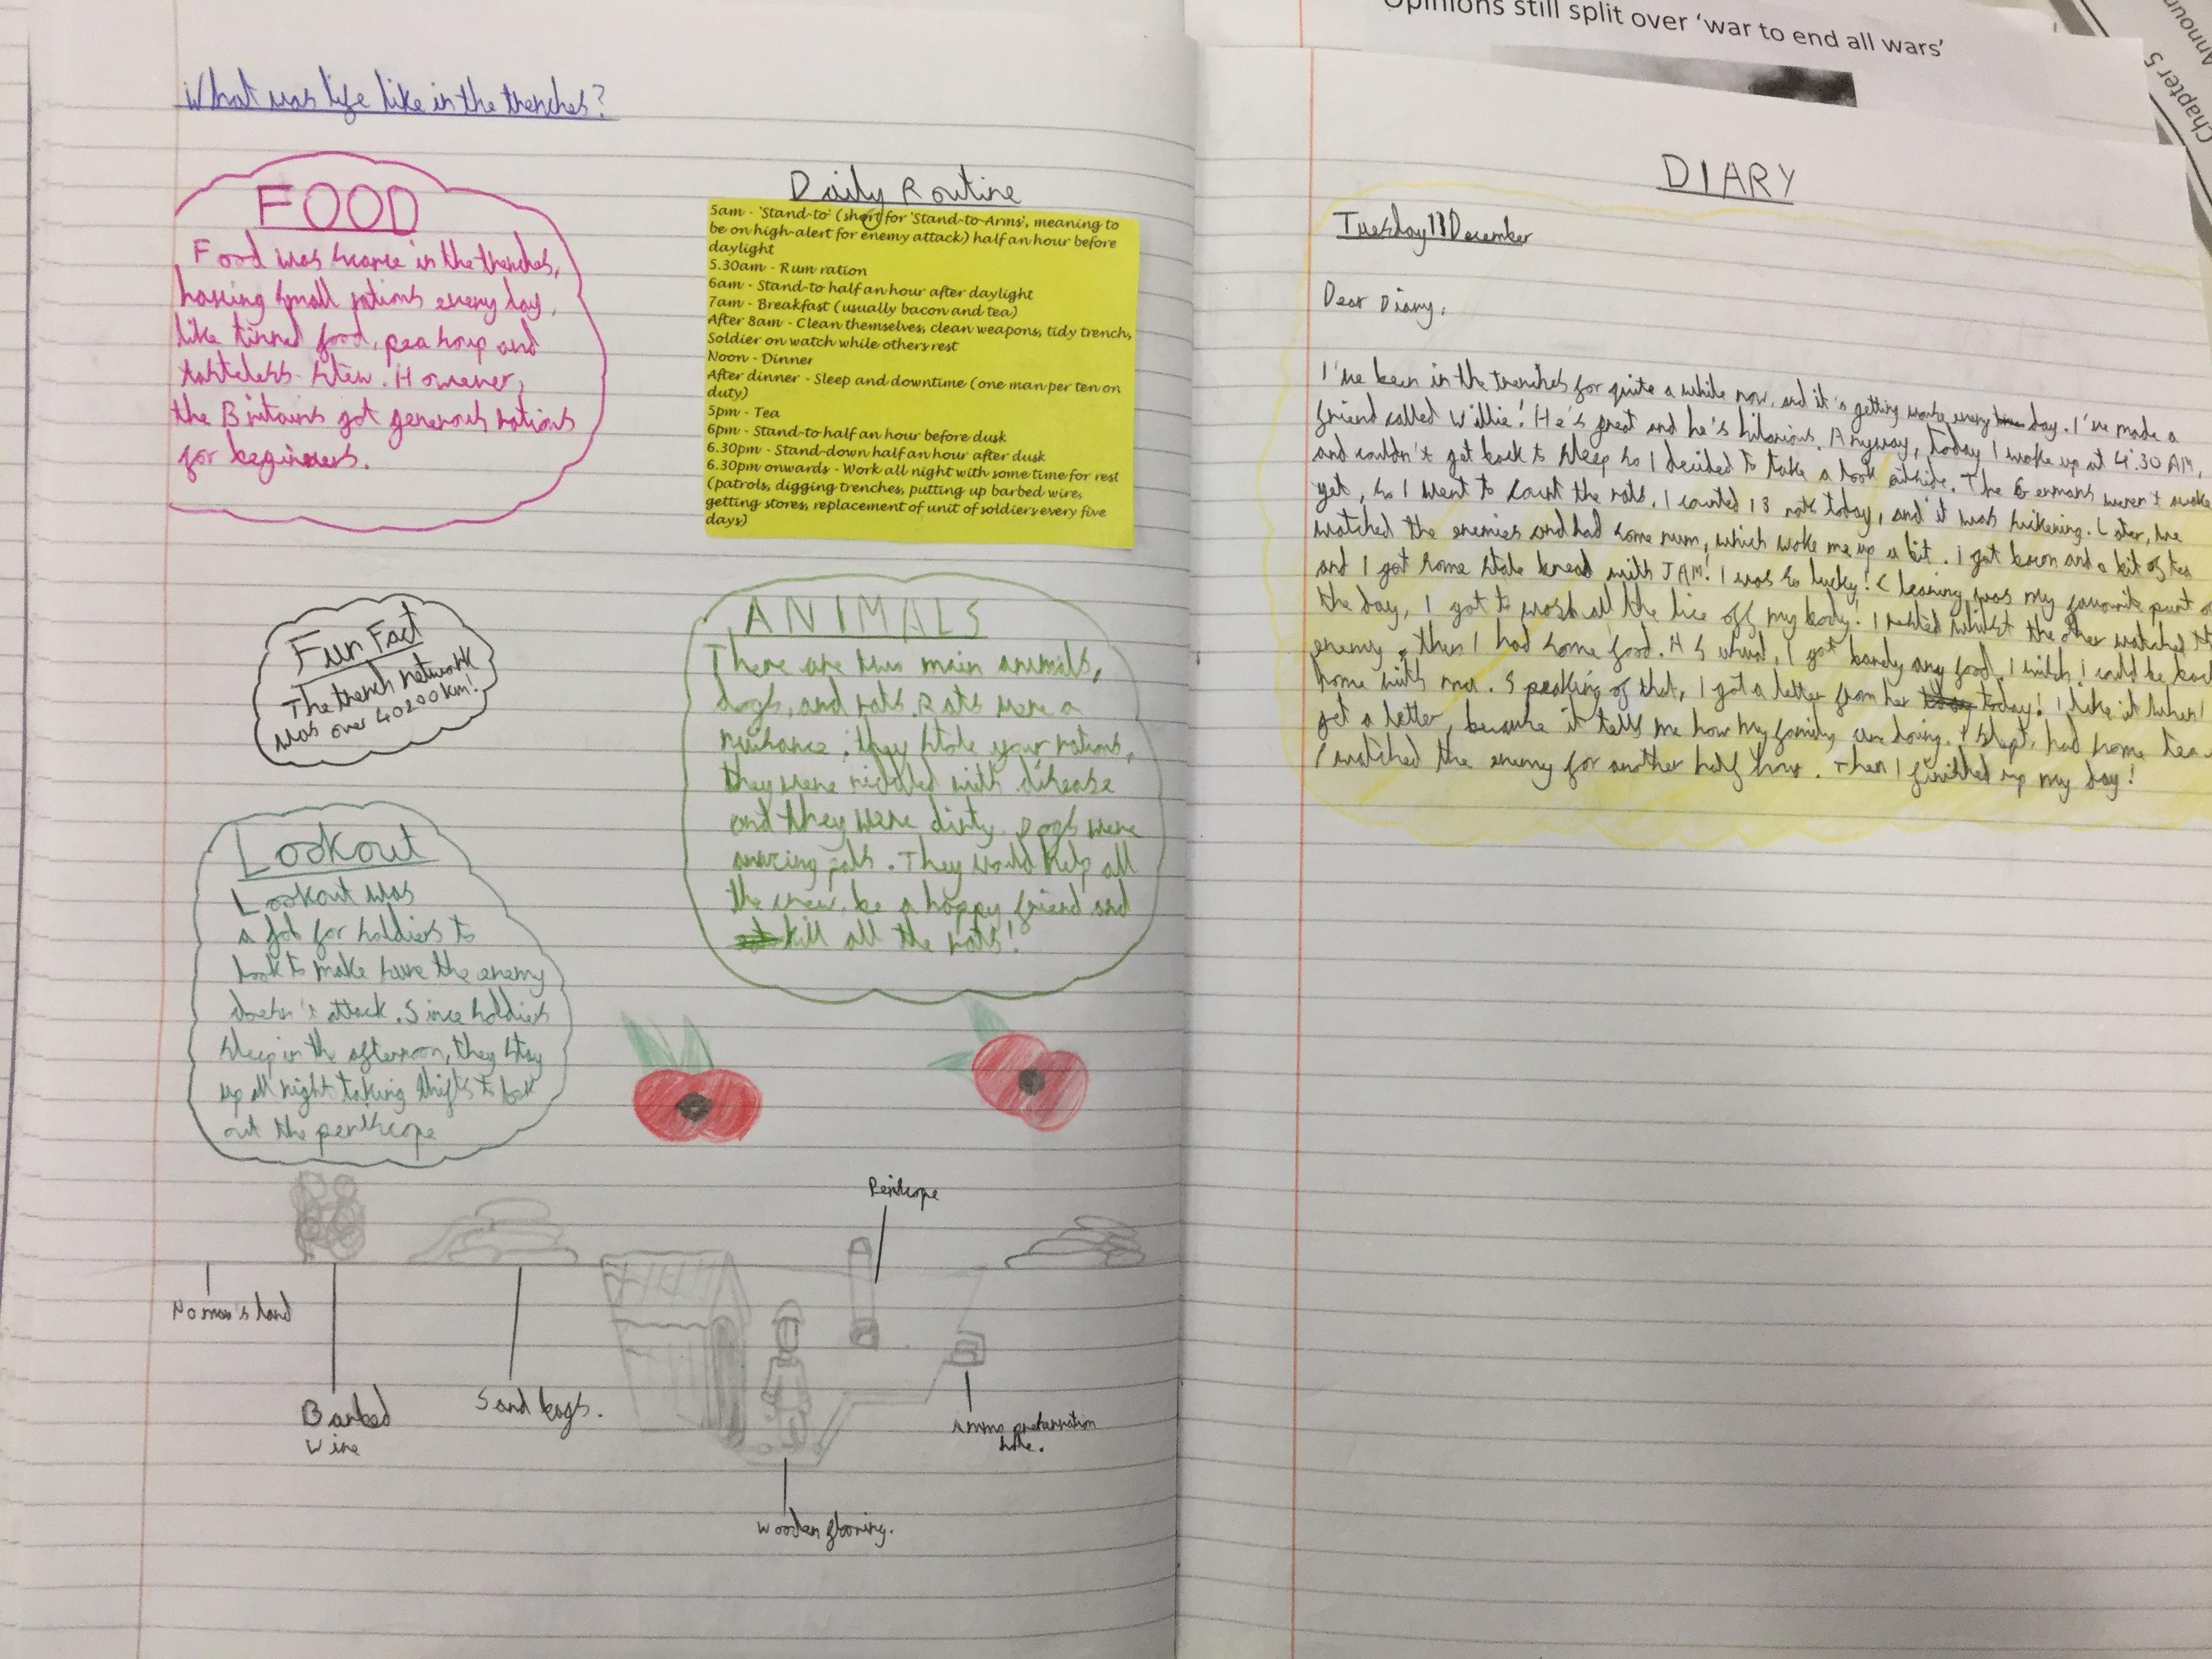 What was life like in the trenches?
FOOD
Food was scarce in the trenches,
having small rations every day,
like tinned food, pea soup and
tasteless stew. However,
the Britains got generous rations
for beginners.
Daily Routine
5am - 'Stand-to' (short for 'Stand-to-Arms', meaning to
be on high-alert for enemy attack) half an hour before
daylight
5.30am - Rum ration
6am - Stand-to half an hour after daylight
7am - Breakfast (usually bacon and tea)
After 8am - Clean themselves, clean weapons, tidy trench,
Soldier on watch while others rest
Noon - Dinner
After dinner - Sleep and downtime (one man per ten on
duty)
5pm - Tea
6pm - Stand-to half an hour before dusk
6.30pm - Stand-down half an hour after dusk
6.30pm onwards - Work all night with some time for rest
(patrols, digging trenches, putting up barbed wire,
getting stores, replacement of unit of soldiers every five
days)
Fun Fact
The trench network
was over 40200km!
ANIMALS
There are two main animals,
dogs, and rats. Rats were a
nuisance; they stole your rations,
they were riddled with disease
and they were dirty. Dogs were
amazing pals. They would help all
the crew, be a happy friend and
kill all the rats!
Lookout
Lookout was
a job for soldiers to
look to make sure the enemy
doesn't attack. Since soldiers
sleep in the afternoon, they stay
up all night taking shifts to look
out the periscope
Periscope
No man's land
Barbed
wire
Sand bags.
Ammo preservation
hole.
Wooden flooring.
Opinions still split over 'war to end all wars'
Chapter 5
DIARY
Tuesday 11 December
Dear Diary,
I've been in the trenches for quite a while now, and it's getting worse every day. I've made a
friend called Willie! He's great and he's hilarious. Anyway, today I woke up at 4:30 AM,
and couldn't get back to sleep so I decided to take a look outside. The Germans weren't awake
yet, so I went to count the rats. I counted 13 rats today, and it was sickening. Later, we
watched the enemies and had some rum, which woke me up a bit. I got bacon and a bit of tea
and I got some stale bread with JAM! I was so lucky! Cleaning was my favourite part of
the day, I got to wash all the lice off my body! I rested whilst the other watched the
enemy, then I had some food. As usual, I got barely any food. I wish I could be back
home with ma. Speaking of that, I got a letter from her today! I like it when I
get a letter, because it tells me how my family are doing. I slept, had some tea
I watched the enemy for another half hour. Then I finished up my day!